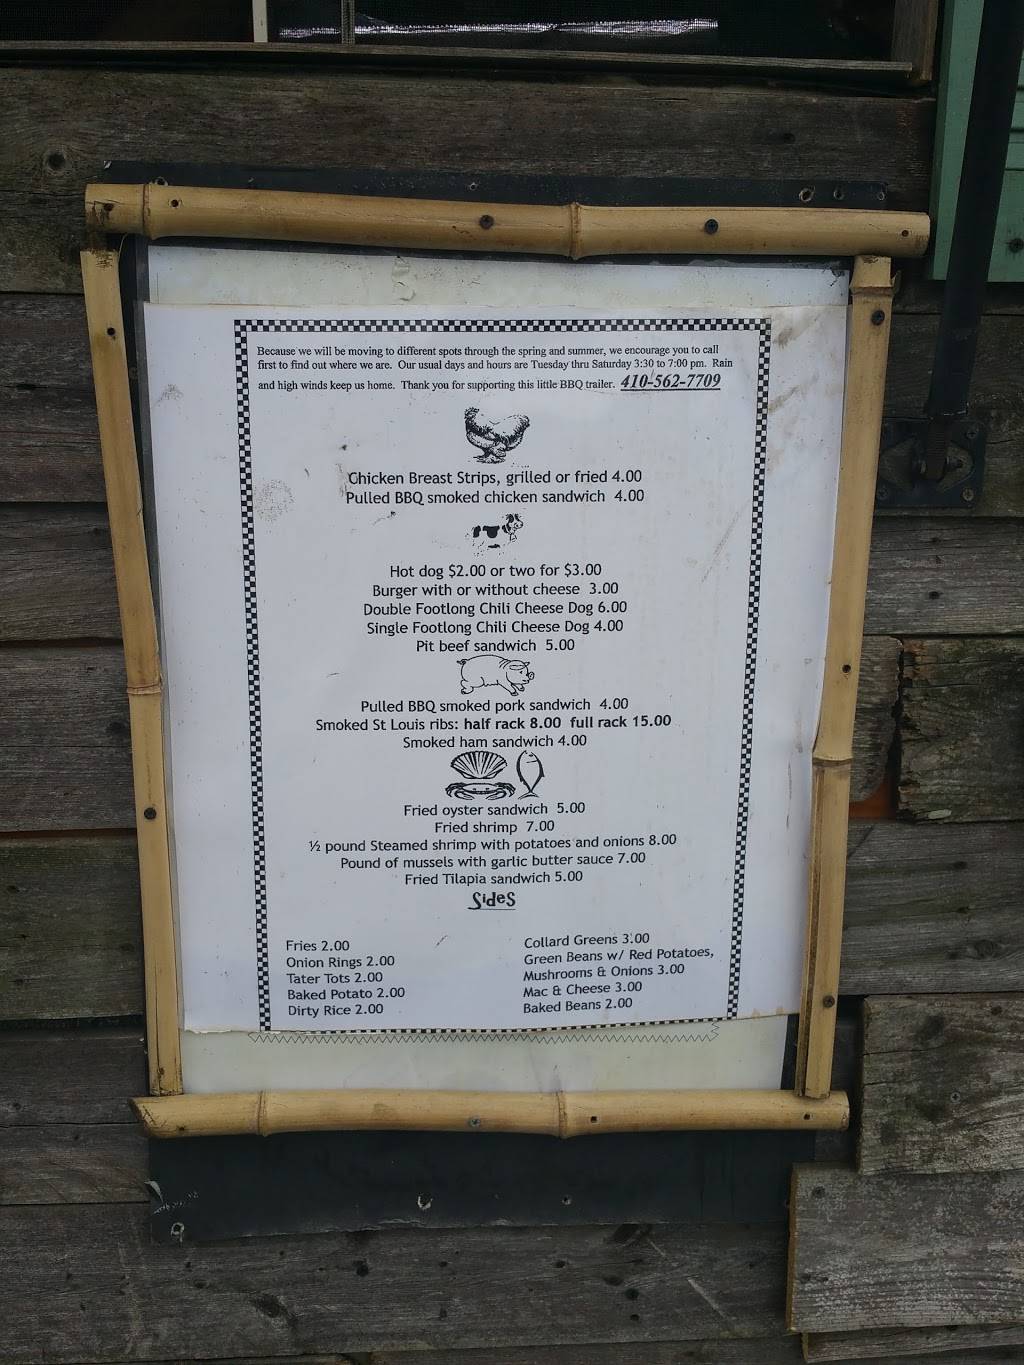 Because we will be moving to different spots through the spring and summer, we encourage you to call
first to find out where we are. Our usual days and hours are Tuesday thru Saturday 3:30 to 7:00 pm. Rain
and high winds keep us home. Thank you for supporting this little BBQ trailer. 410-562-7709
Chicken Breast Strips, grilled or fried 4.00
Pulled BBQ smoked chicken sandwich 4.00
Hot dog $2.00 or two for $3.00
Burger with or without cheese 3.00
Double Footlong Chili Cheese Dog 6.00
Single Footlong Chili Cheese Dog 4.00
Pit beef sandwich 5.00
Pulled BBQ smoked pork sandwich 4.00
Smoked St Louis ribs: half rack 8.00 full rack 15.00
Smoked ham sandwich 4.00
Fried oyster sandwich 5.00
Fried shrimp 7.00
½ pound Steamed shrimp with potatoes and onions 8.00
Pound of mussels with garlic butter sauce 7.00
Fried Tilapia sandwich 5.00
Sides
Fries 2.00
Onion Rings 2.00
Tater Tots 2.00
Baked Potato 2.00
Dirty Rice 2.00
Collard Greens 3.00
Green Beans w/ Red Potatoes,
Mushrooms & Onions 3.00
Mac & Cheese 3.00
Baked Beans 2.00